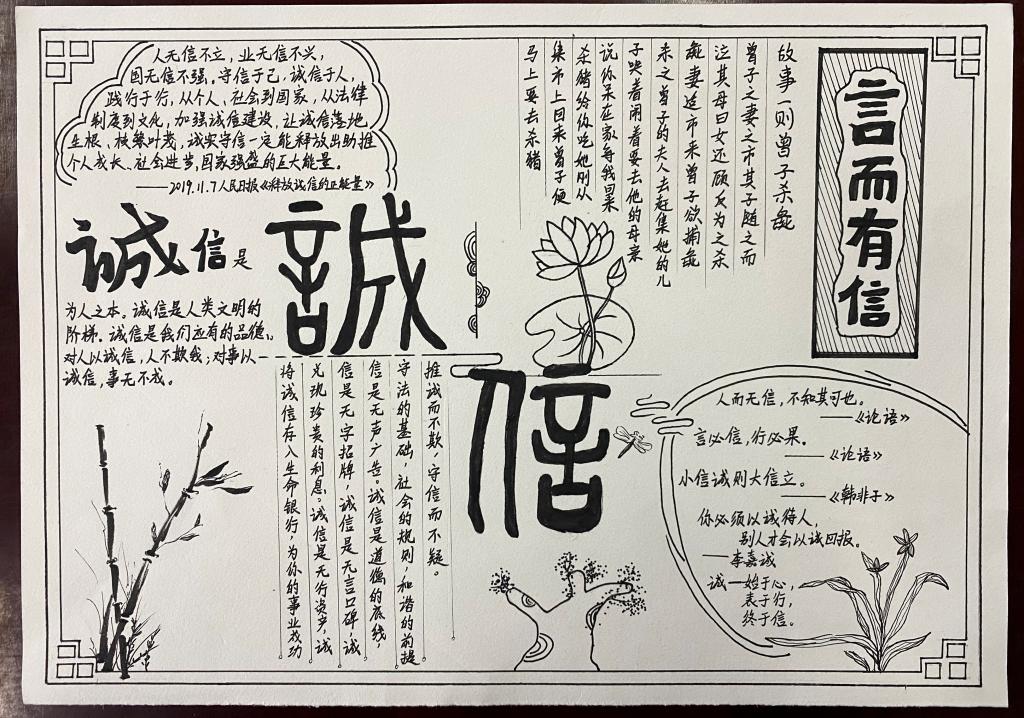 人无信不立，业无信不兴，
国无信不强。守信于己，诚信于人，
践行于行，从个人、社会到国家，从法律
制度到文化，加强诚信建设，让诚信落地
生根、枝繁叶茂，诚实守信一定能释放出助推
个人成长、社会进步，国家强盛的巨大能量。
——2019.11.7人民日报《释放诚信的正能量》
言而有信
故事一则曾子杀彘
曾子之妻之市其子随之而
泣其母曰女还顾反为之杀
彘妻适市来曾子欲捕彘
杀之曾子的夫人去赶集她的儿
子哭着闹着要去他的母亲
说你呆在家等我回来
杀猪给你吃她刚从
集市上回来曾子便
马上要去杀猪
誠信
诚信是
为人之本。诚信是人类文明的
阶梯。诚信是我们应有的品德。
对人以诚信，人不欺我；对事以
诚信，事无不成。
推诚而不欺，守信而不疑。
守法的基础，社会的规则，和谐的前提
信是无声广告。诚信是道德的底线，
信是无字招牌，诚信是无言口碑，诚
兑现珍贵的利息。诚信是无行资产，诚
将诚信存入生命银行，为你的事业成功
人而无信，不知其可也。
——《论语》
言必信，行必果。
——《论语》
小信诚则大信立。
——《韩非子》
你必须以诚待人，
别人才会以诚回报。
——李嘉诚
诚—始于心，
表于行，
终于信。